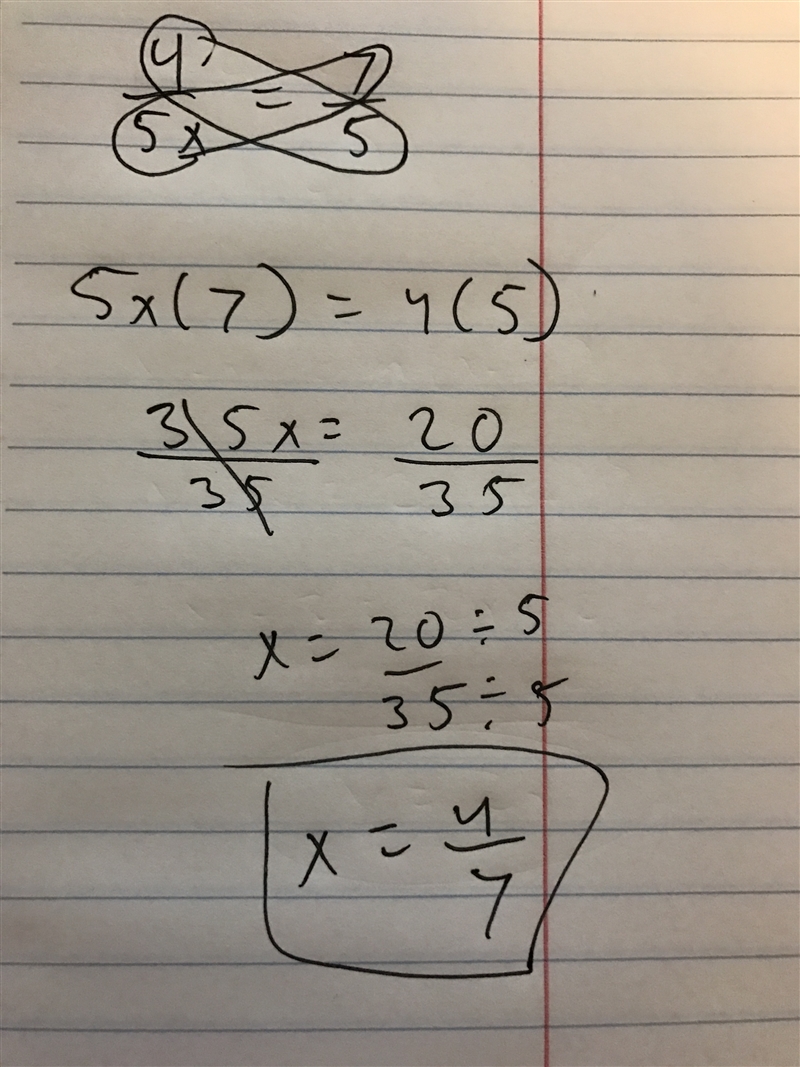 4/5x = 7/5
5x(7) = 4(5)
35x/35 = 20/35
x = 20÷5/35÷5
x = 4/7